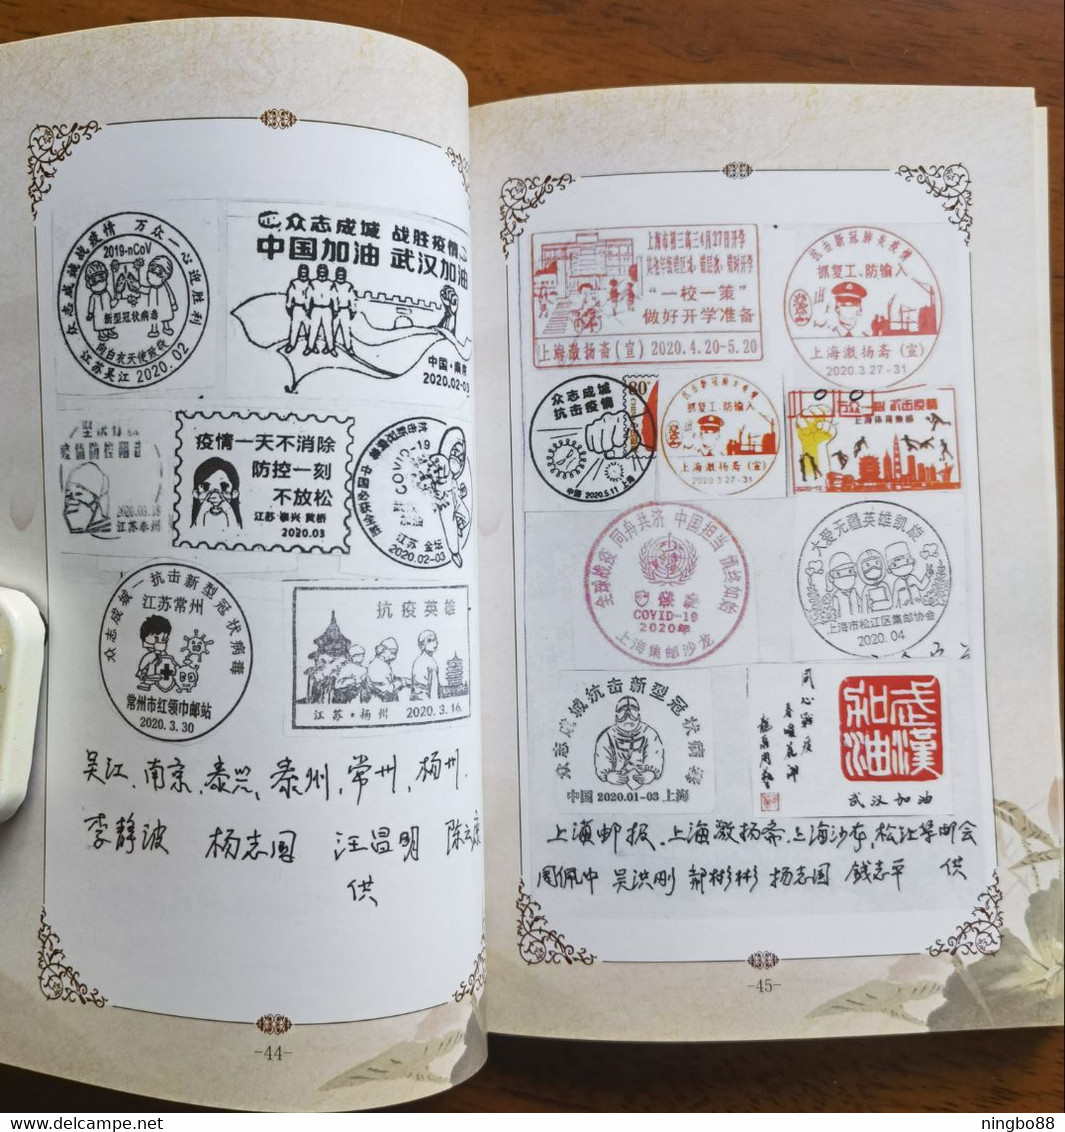 众志成城战疫情 万众一心迎胜利
2019-nCoV
新型冠状病毒
向白衣天使致敬
江苏吴江 2020.02
众志成城 战胜疫情
中国加油 武汉加油
中国·南京
2020.02-03
疫情防控阻击
2020.03.18
江苏泰州
疫情一天不消除
防控一刻
不放松
江苏 泰兴 黄桥
2020.03
COVID-19
中国必获全胜
江苏 金坛
2020.02-03
众志成城—抗击新型冠状病毒
江苏常州
常州市红领巾邮站
2020.3.30
抗疫英雄
江苏·扬州 2020.3.16.
吴江、南京、泰兴、泰州、常州、杨州、
李静波 杨志国 汪昌明
供
-44-
上海市初三高三4月27日开学
其他年级错区域、错层次、错时开学
“一校一策”
做好开学准备
上海激扬斋(宣) 2020.4.20-5.20
抗击新冠肺炎疫情
抓复工、防输入
上海激扬斋(宣)
2020.3.27-31
众志成城
抗击疫情
中国 2020.5.11 上海
80
抗击新冠肺炎疫情
抓复工、防输入
上海激扬斋(宣)
2020.3.27-31
万众一心 抗击疫情
上海体育集邮
全球战疫 同舟共济 中国担当 情终如始
COVID-19
2020年
上海集邮沙龙
大爱无疆英雄凯旋
上海市松江区集邮协会
2020.04
众志成城抗击新型冠状病毒
中国 2020.01-03 上海
同心战疫
春暖花开
武漢加油
武汉加油
上海邮报、上海激扬斋、上海沙龙、松江集邮会
周佩中 吴洪刚 郝彬彬 杨志国 钱志平 供
-45-
delcampe.net
ningbo88